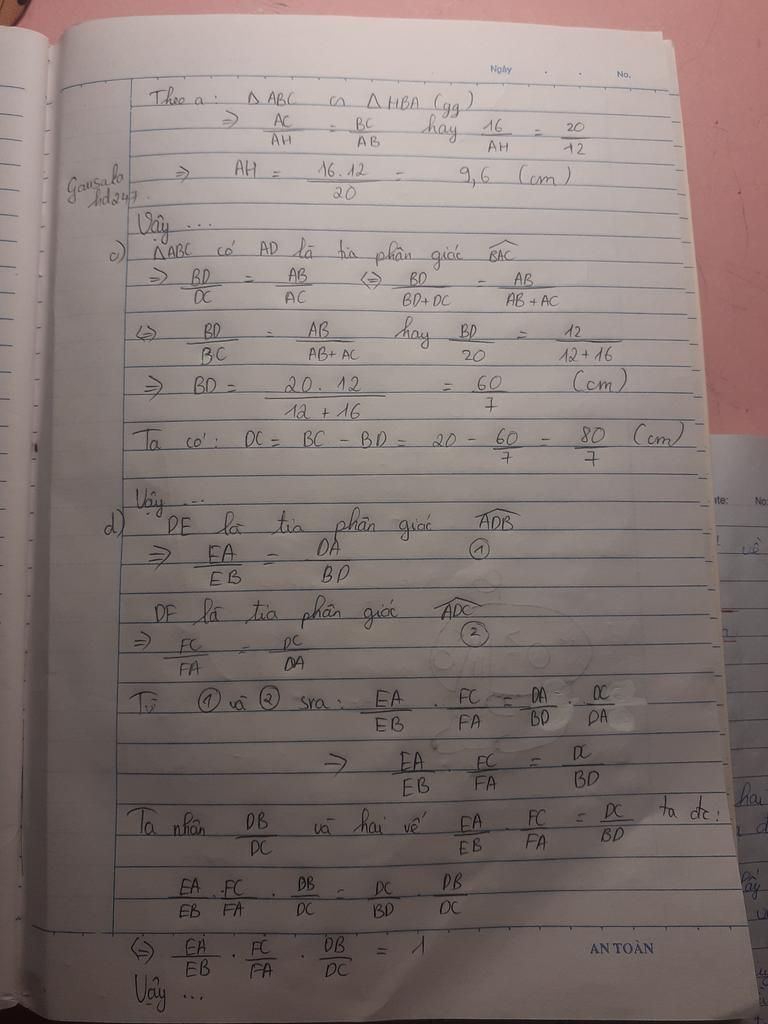 Ngày . . No.
Theo a: △ABC ∽ △HBA (gg)
⇒ AC/AH = BC/AB hay 16/AH = 20/12
⇒ AH = 16.12/20 = 9,6 (cm)
Gausako
hd247.
Vậy ...
c) △ABC có AD là tia phân giác BAC
⇒ BD/DC = AB/AC ⇔ BD/BD+DC = AB/AB+AC
⇔ BD/BC = AB/AB+AC hay BD/20 = 12/12+16
⇒ BD = 20.12/12+16 = 60/7 (cm)
Ta có: DC = BC - BD = 20 - 60/7 = 80/7 (cm)
Vậy ...
d) DE là tia phân giác ADB
⇒ EA/EB = DA/BD ①
DF là tia phân giác ADC
⇒ FC/FA = DC/DA ②
Từ ① và ② sra: EA/EB . FC/FA = DA/BD . DC/DA
⇒ EA/EB . FC/FA = DC/BD
Ta nhân DB/DC và hai vế EA/EB . FC/FA = DC/BD ta đc:
EA/EB . FC/FA . DB/DC = DC/BD . DB/DC
⇔ EA/EB . FC/FA . DB/DC = 1
AN TOÀN
Vậy ...